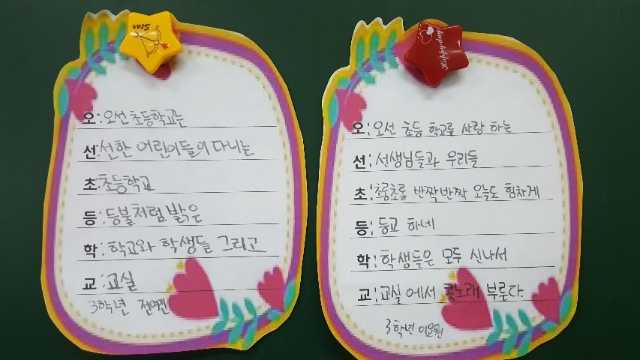 오: 오선 초등학교는
선: 선한 어린이들이 다니는
초: 초등학교
등: 등불처럼 밝은
학: 학교와 학생들 그리고
교: 교실
3학년
오: 오선 초등 학교를 사랑 하는
선: 선생님들과 우리들
초: 초롱초롱 반짝반짝 오늘도 힘차게
등: 등교 하네
학: 학생들은 모두 신나서
교: 교실에서 콩노래 부른다.
3학년